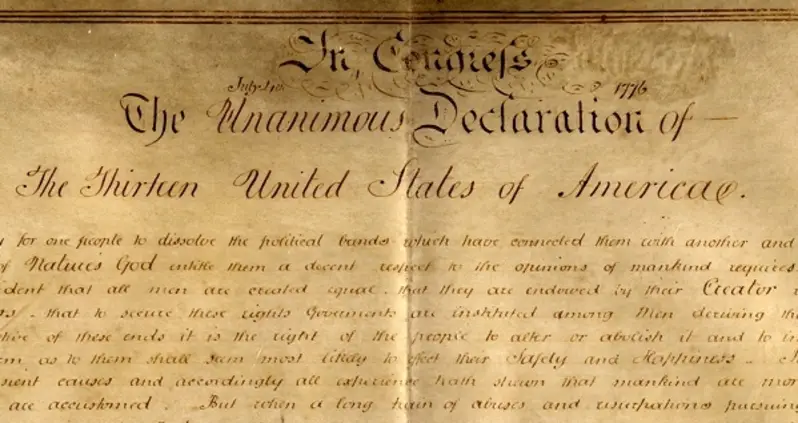 In Congress
July 4th 1776
The Unanimous Declaration of
The Thirteen United States of America.
for one people to dissolve the political bands which have connected them with another and
of Nature's God entitle them a decent respect to the opinions of mankind requires
ident that all men are created equal that they are endowed by their Creator
that to secure these rights Goverments are instituted among Men deriving
tive of these ends it is the right of the people to alter or abolish it and to in
em as to them shall seem most likely to effect their Safety and Happiness
sient causes and accordingly all experience hath shewn that mankind are mor
are accustomed. But when a long train of abuses and usurpations pursuing